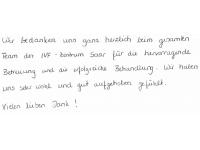 Wir bedanken uns ganz herzlich beim gesamten
Team des IVF-Zentrum Saar für die hervorragende
Betreuung und die erfolgreiche Behandlung. Wir haben
uns sehr wohl und gut aufgehoben gefühlt.
Vielen lieben Dank!